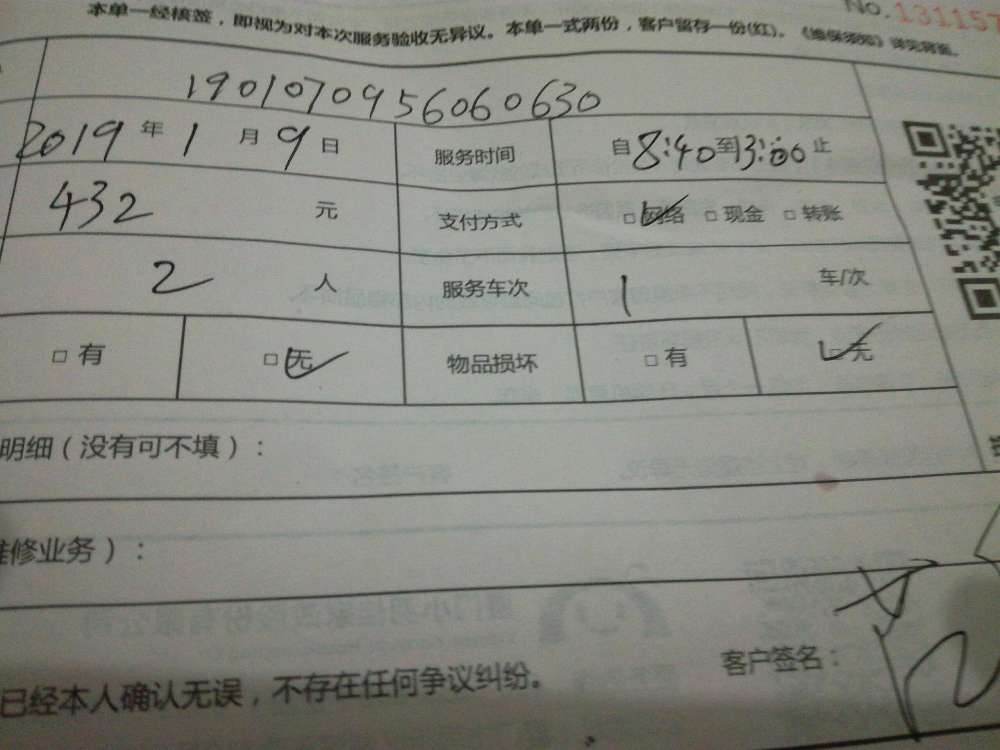 本单一经核签，即视为对本次服务验收无异议。本单一式两份，客户留存一份(红)。《维保须知》详见背面。
No.131157
190107095606063​0
2019年1月9日 服务时间 自8:40至13:00止
432元 支付方式 □网络 □现金 □转账
2人 服务车次 1车/次
□有 □无 物品损坏 □有 □无
明细（没有可不填）：
维修业务）：
已经本人确认无误，不存在任何争议纠纷。
客户签名：